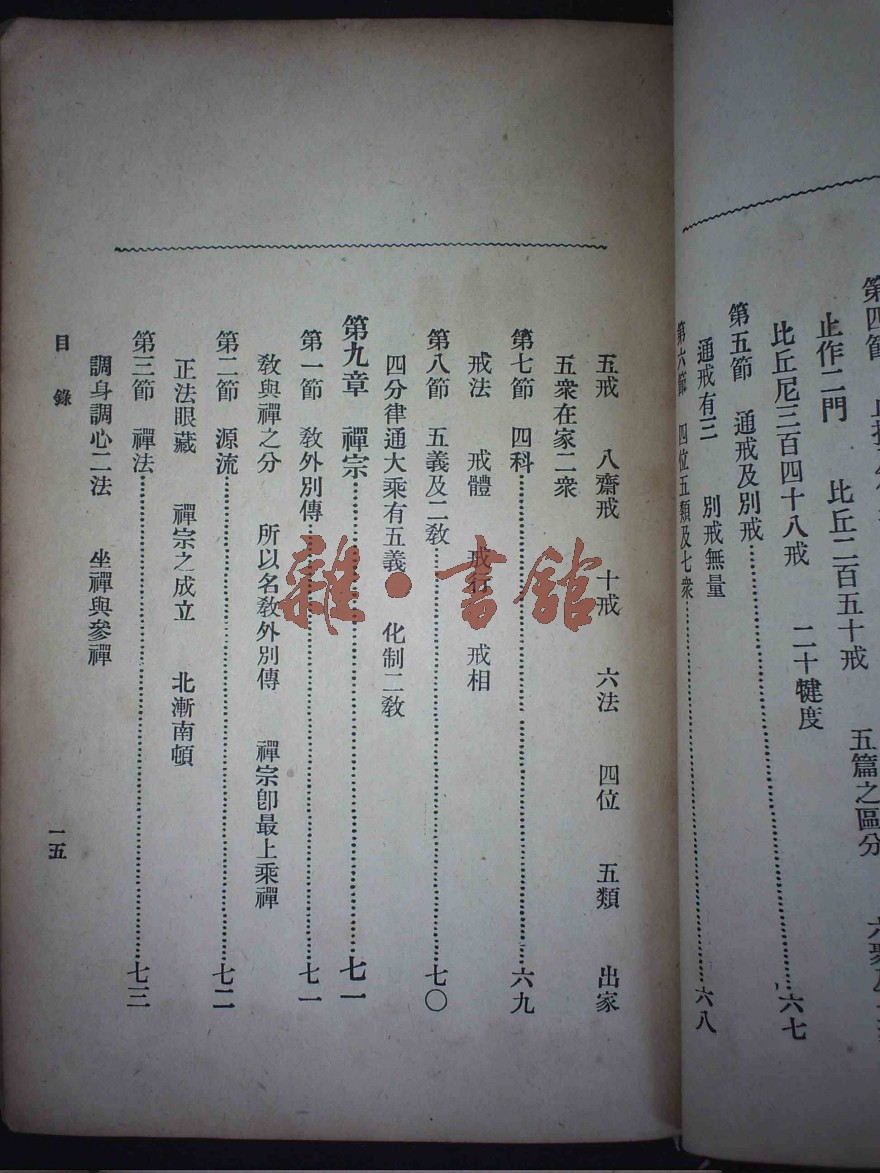 第四節
止作二門 比丘二百五十戒 五篇之區分 六聚
比丘尼三百四十八戒 二十犍度
第五節 通戒及別戒……六七
通戒有三 別戒無量
第六節 四位五類及七衆……六八
五戒 八齋戒 十戒 六法 四位 五類 出家
五衆在家二衆
第七節 四科……六九
戒法 戒體 戒行 戒相
第八節 五義及二敎……七〇
四分律通大乘有五義 化制二敎
第九章 禪宗……七一
第一節 敎外別傳……七一
敎與禪之分 所以名敎外別傳 禪宗卽最上乘禪
第二節 源流……七二
正法眼藏 禪宗之成立 北漸南頓
第三節 禪法……七三
調身調心二法 坐禪與參禪
目錄
一五
雜·書館